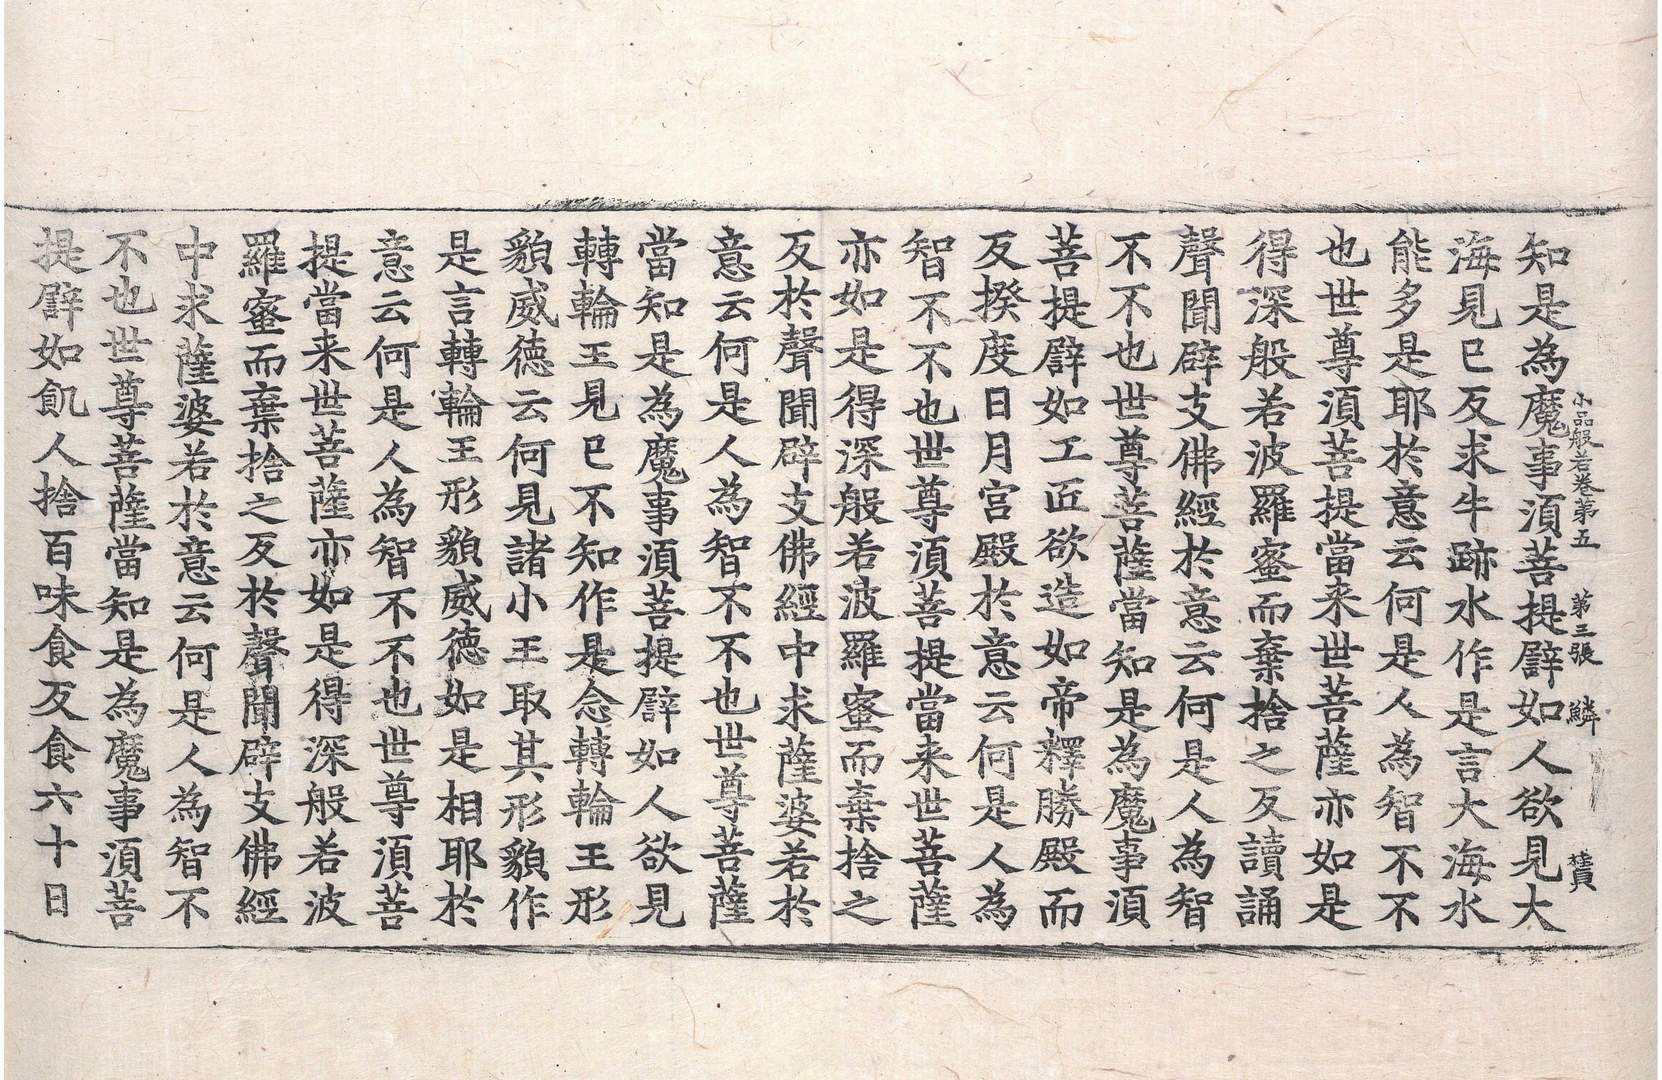 小品般若卷第五 第三張 鱗
知是為魔事須菩提譬如人欲見大
海見已反求牛跡水作是言大海水
能多是耶於意云何是人為智不不
也世尊須菩提當来世菩薩亦如是
得深般若波羅蜜而棄捨之反讀誦
聲聞辟支佛經於意云何是人為智
不不也世尊菩薩當知是為魔事須
菩提譬如工匠欲造如帝釋勝殿而
反揆度日月宮殿於意云何是人為
智不不也世尊須菩提當来世菩薩
亦如是得深般若波羅蜜而棄捨之
反於聲聞辟支佛經中求薩婆若於
意云何是人為智不不也世尊菩薩
當知是為魔事須菩提譬如人欲見
轉輪王見已不知作是念轉輪王形
貌威德云何見諸小王取其形貌作
是言轉輪王形貌威德如是相耶於
意云何是人為智不不也世尊須菩
提當来世菩薩亦如是得深般若波
羅蜜而棄捨之反於聲聞辟支佛經
中求薩婆若於意云何是人為智不
不也世尊菩薩當知是為魔事須菩
提譬如飢人捨百味食反食六十日